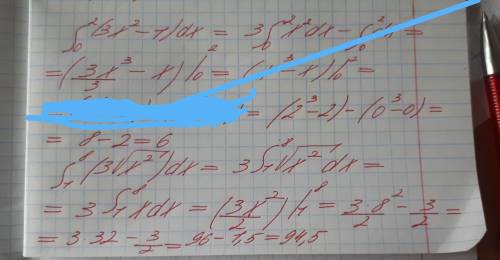 ∫₀² (3x² - 1) dx = 3 ∫₀² x² dx - ∫₀² =
= (3x³/3 - x) |₀² = ( ³ - x) |₀² =
= (2³ - 2) - (0³ - 0) =
= 8 - 2 = 6
∫₁⁸ (3√x²) dx = 3 ∫₁⁸ √x² dx =
= 3 ∫₁⁸ x dx = (3x²/2) |₁⁸ = 3·8²/2 - 3/2 =
= 3·32 - 3/2 = 96 - 1,5 = 94,5